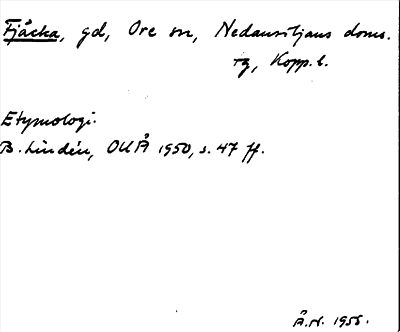 Fjäcka, gd, Ore sn, Nedansiljans doms.
tg, Kopp. l.
Etymologi.
B. Lindén, OUÅ 1950, s. 47 ff.
Å.N. 1956.